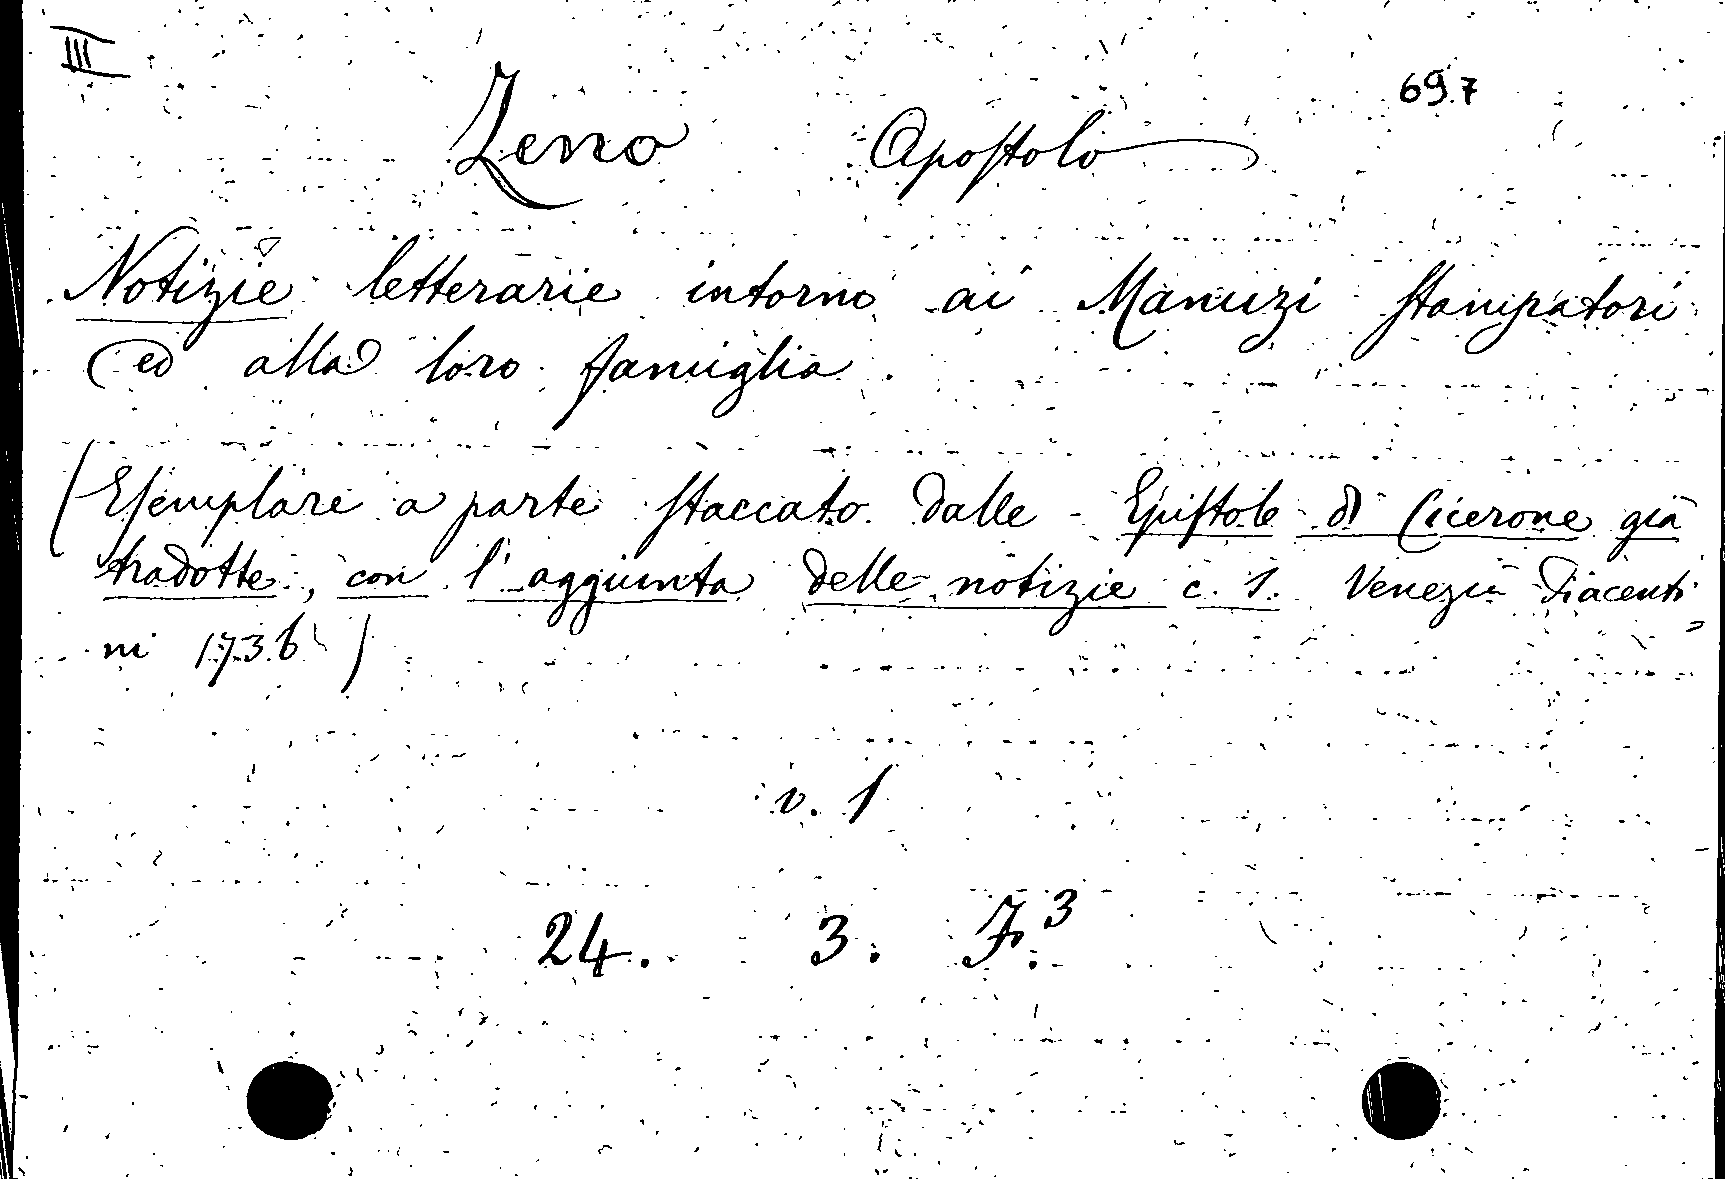 III
697
Zeno Apostolo
Notizie letterarie intorno ai Manuzi stampatori
ed alla loro famiglia.
(Esemplare a parte staccato dalle Epistole di Cicerone già
tradotte, con l'aggiunta delle notizie c. s. Venezia Piacenti=
ni 1736)
v. 1
24. 3. F.3